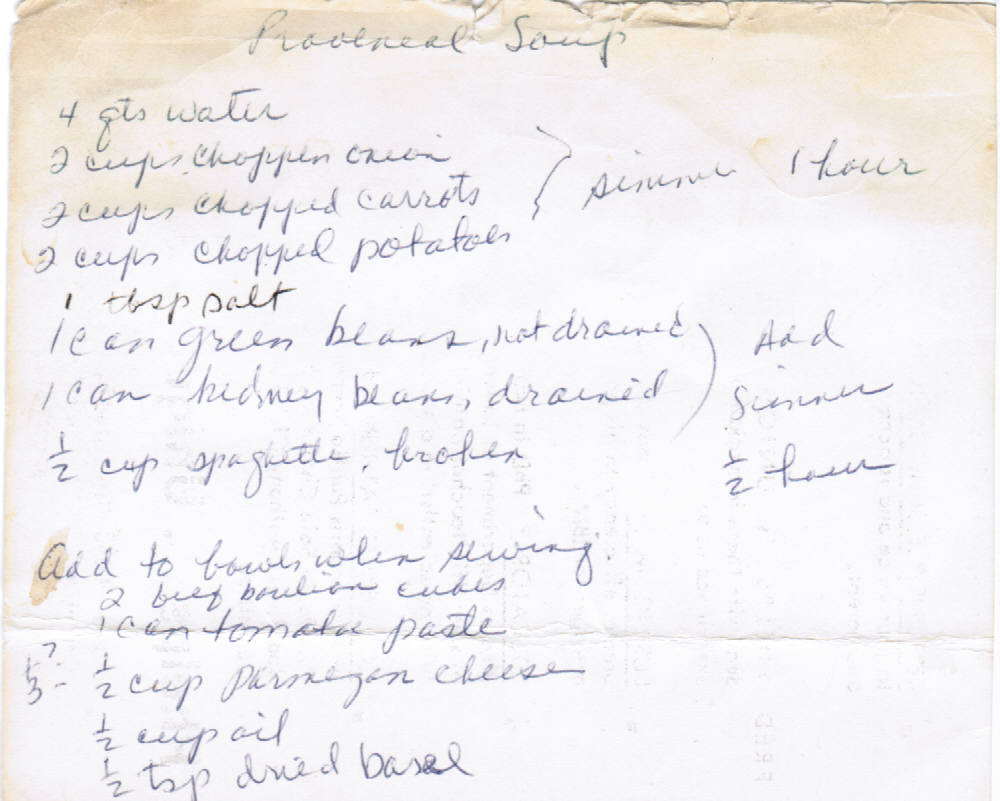 Provencal Soup
4 qts water
2 cups chopped onion
2 cups chopped carrots } simmer 1 hour
2 cups chopped potatoes
1 tbsp salt
1 can green beans, not drained ) Add
1 can kidney beans, drained simmer
1/2 cup spaghetti, broken 1/2 hour
Add to bowls when serving.
2 beef boulion cubes
1 can tomatoe paste
1/3 ? - 1/2 cup Parmezan cheese
1/2 cup oil
1/2 tsp dried basel